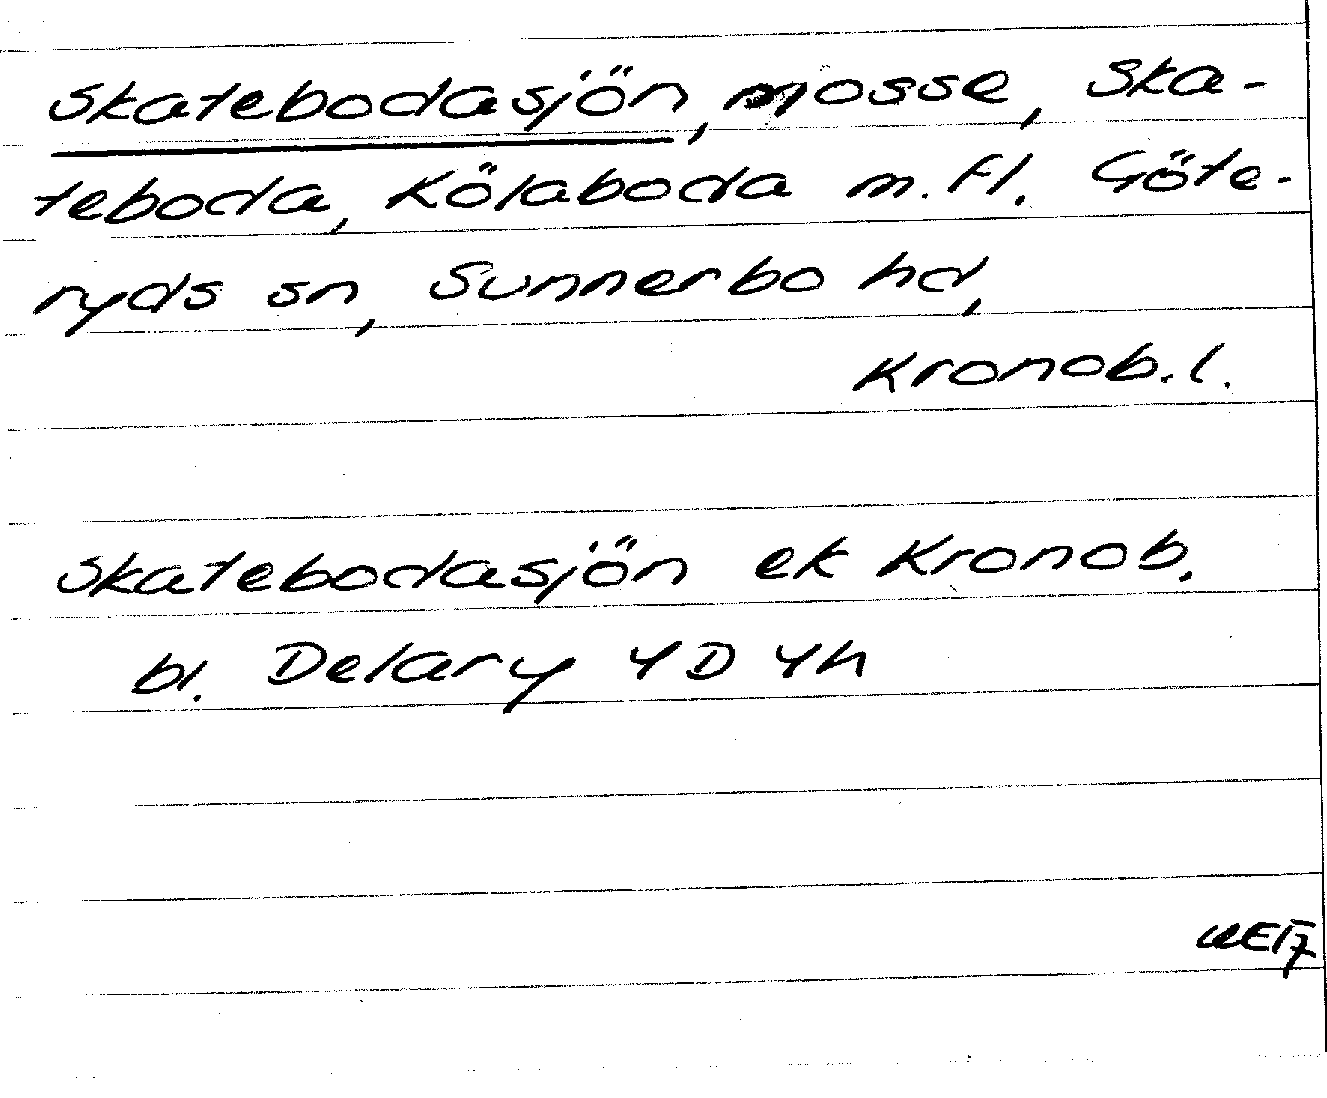 Skatebodasjön, mosse, Ska-
teboda, Kölaboda m. fl. Göte-
ryds sn, Sunnerbo hd,
Kronob. l.
Skatebodasjön ek Kronob.
bl. Delary 4D 4h